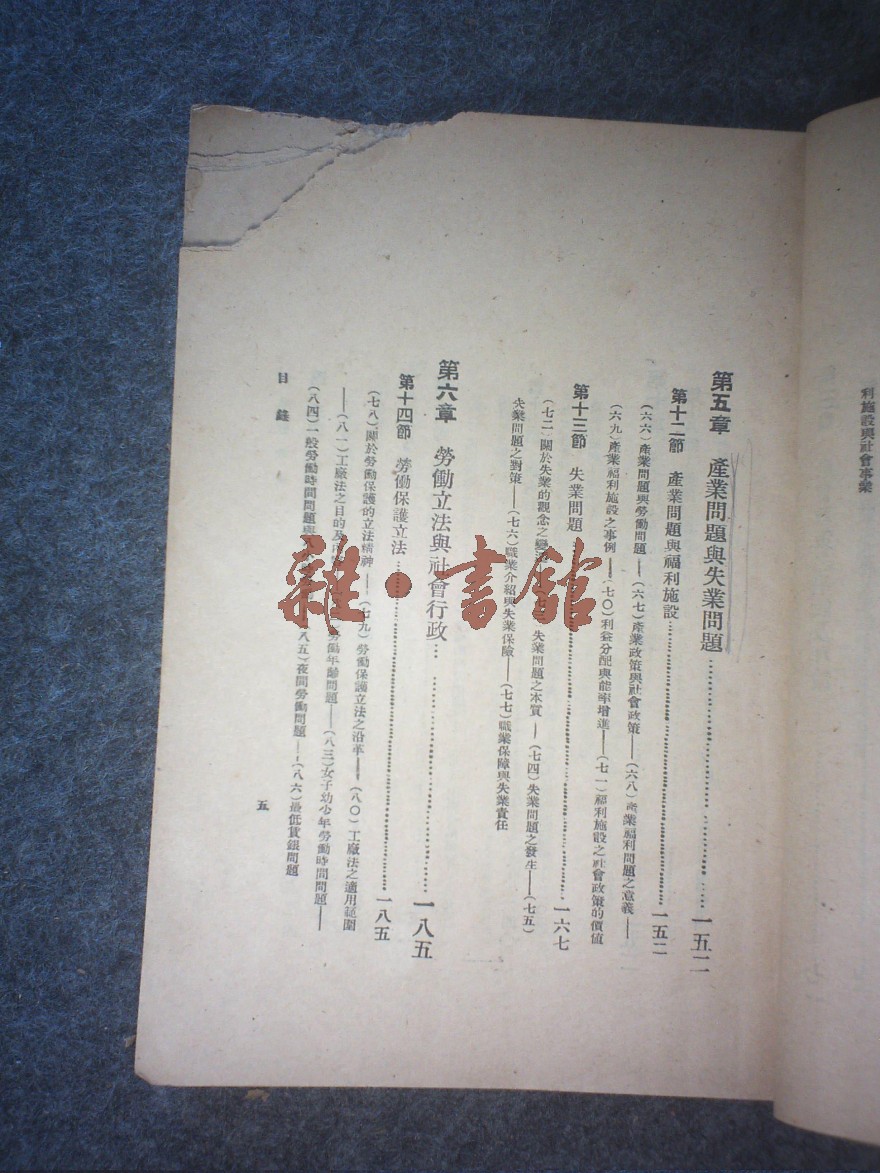 利施設與社會事業
第五章 產業問題與失業問題……一五二
第十二節 產業問題與福利施設……一五二
(六六)產業問題與勞働問題——(六七)產業政策與社會政策——(六八)產業福利問題之意義——
(六九)產業福利施設之事例——(七〇)利益分配與能率增進——(七一)福利施設之社會政策的價值
第十三節 失業問題……一六七
(七二)關於失業的觀念之變 失業問題之本質——(七四)失業問題之發生——(七五)
失業問題之對策——(七六)職業介紹與失業保險——(七七)職業保障與失業責任
第六章 勞働立法與社會行政……一八五
第十四節 勞働保護立法……一八五
(七八)關於勞働保護的立法精神——(七九)勞働保護立法之沿革——(八〇)工廠法之適用範圍
——(八一)工廠法之目的及 勞働年齡問題——(八三)女子幼少年勞働時間問題——
(八四)一般勞働時間問題與 八五)夜間勞働問題——(八六)最低賃銀問題
目錄
五
雜·書館